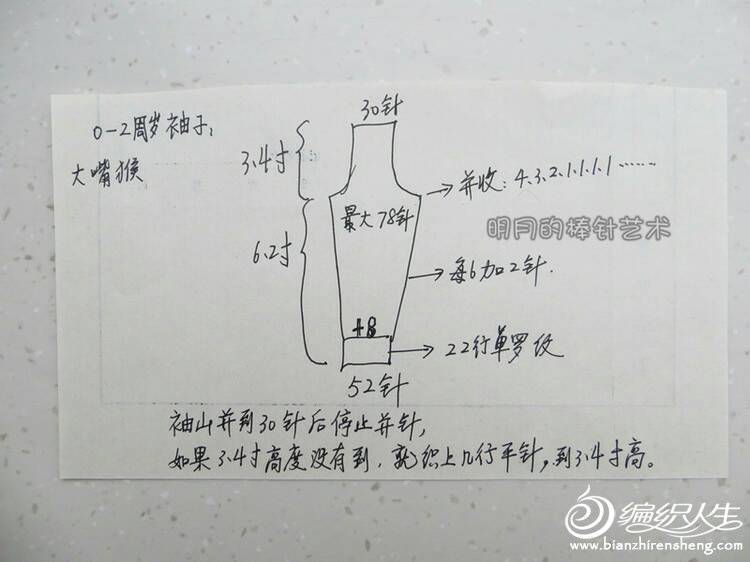 0-2周岁袖子:
大嘴猴
30针
3.4寸
并收:4.3.2.1.1.1.1……
最大78针
明月的棒针艺术
6.2寸
每6加2针.
+8
22行单罗纹
52针
袖山并到30针后停止并针,
如果3.4寸高度没有到,就织上几行平针,到3.4寸高。
编织人生
www.bianzhirensheng.com